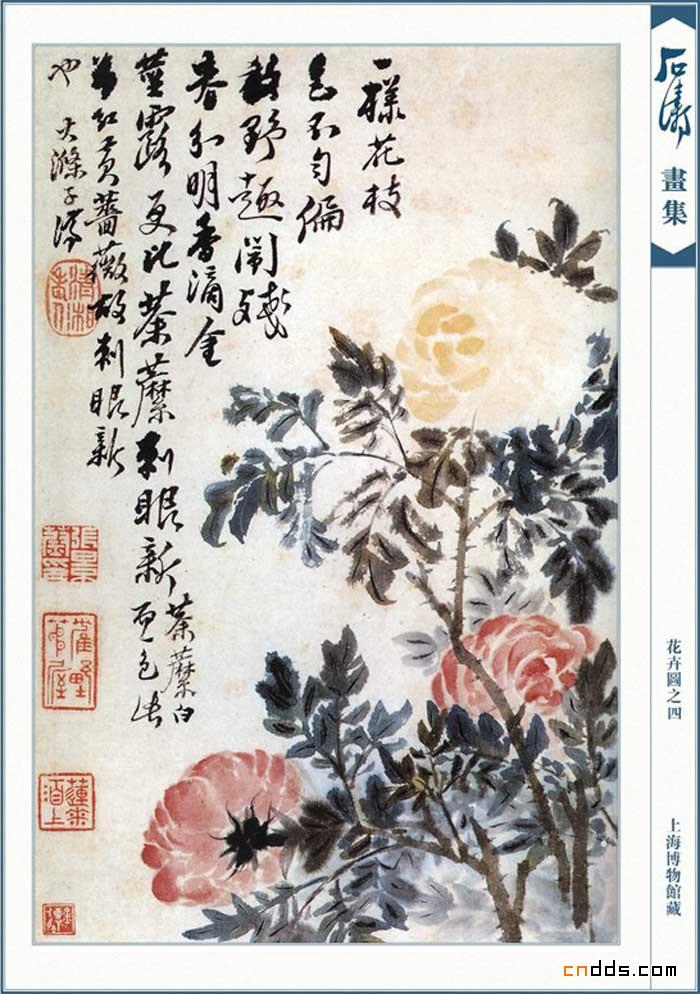 石濤
畫集
花卉圖之四
上海博物館藏
一樣花枝
色不勻偏
野趣鬧殘
春分明香滴金
莖露更比荼蘼刺眼新荼蘼白
而色
紅黃薔薇故刺眼新
也 大滌子濟
清湘老人
cndds.com